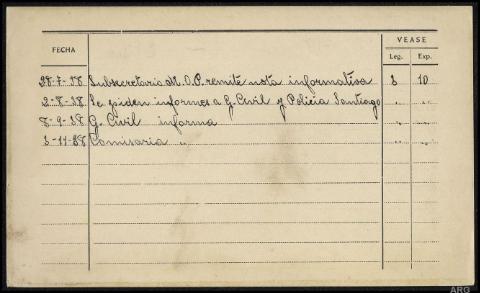 VEASE
FECHA Leg. Exp.
28-7-38 Subsecretario M.O.P. remite nota informativa 3 10
2-8-38 Se piden informes a G. Civil y Policia Santiago " "
8-9-38 G. Civil informa " "
3-11-38 Comisaria " " "
ARG